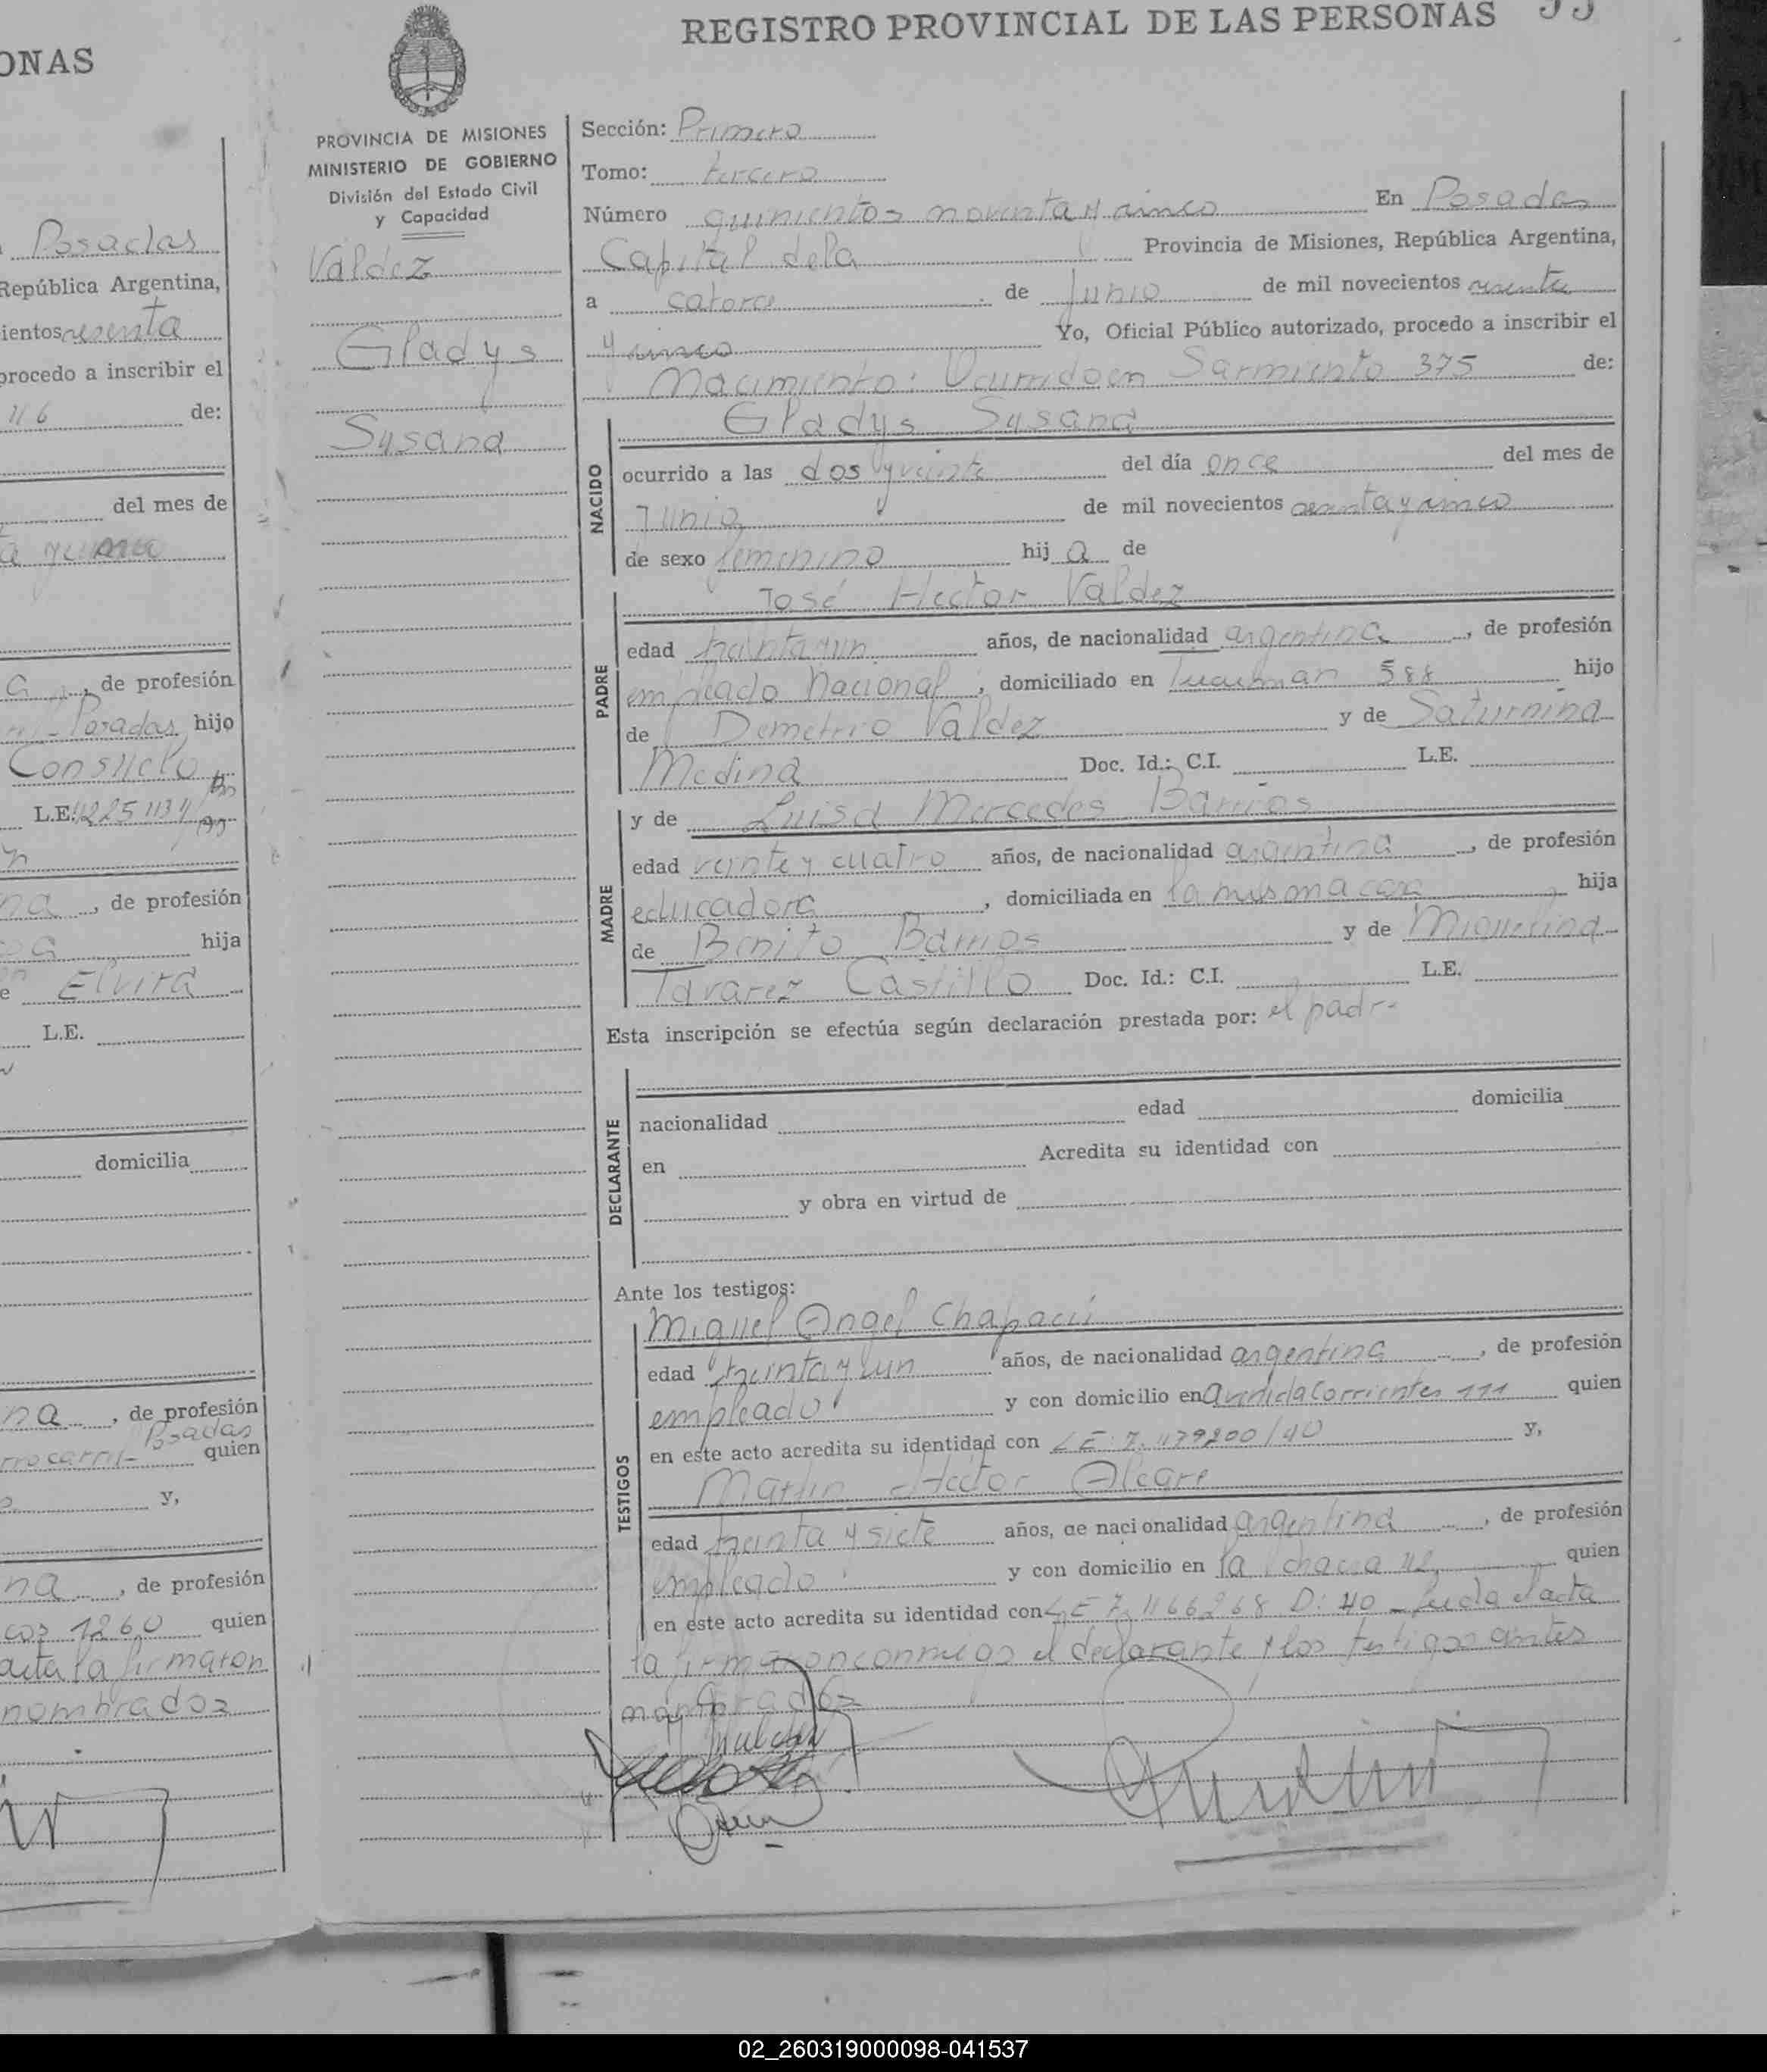 ONAS
Posadas
República Argentina,
ientos sesenta
procedo a inscribir el
116 de:
del mes de
a y cinco
a, de profesión
Posadas hijo
Consuelo
L.E.
na, de profesión
hija
e Elvira
L.E.
domicilia
na, de profesión
Posadas
rrocarril quien
y,
na, de profesión
cos 1260 quien
acta la firmaron
nombrados
REGISTRO PROVINCIAL DE LAS PERSONAS
PROVINCIA DE MISIONES
MINISTERIO DE GOBIERNO
División del Estado Civil
y Capacidad
Valdez
Gladys
Susana
Sección: Primera
Tomo: tercero
Número quinientos noventa y cinco En Posadas
Capital de la Provincia de Misiones, República Argentina,
a catorce de Junio de mil novecientos sesenta
y cinco Yo, Oficial Público autorizado, procedo a inscribir el
Nacimiento: Ocurrido en Sarmiento 375 de:
Gladys Susana
NACIDO
ocurrido a las dos y veinte del día once del mes de
Junio de mil novecientos sesenta y cinco
de sexo femenino hij a de
José Hector Valdez
PADRE
edad treinta y un años, de nacionalidad argentina, de profesión
empleado Nacional, domiciliado en Tucuman 588 hijo
de Demetrio Valdez y de Saturnina
Medina Doc. Id.: C.I. L.E.
MADRE
y de Luisa Mercedes Barrios
edad veinte y cuatro años, de nacionalidad argentina, de profesión
educadora, domiciliada en la misma casa hija
de Benito Barrios y de Miguelina
Tavarez Castillo Doc. Id.: C.I. L.E.
Esta inscripción se efectúa según declaración prestada por: el padre
DECLARANTE
nacionalidad edad domicilia
en Acredita su identidad con
y obra en virtud de
Ante los testigos:
TESTIGOS
Miguel Angel Chapacú
edad treinta y un años, de nacionalidad argentina, de profesión
empleado y con domicilio en avenida Corrientes 111 quien
en este acto acredita su identidad con LE: 7.479200/40 y,
Martin Hector Alegre
edad treinta y siete años, de nacionalidad argentina, de profesión
empleado y con domicilio en la chacra 42 quien
en este acto acredita su identidad con LE 7.466268 D: 40 - Leida el acta
la firmaron conmigo el declarante y los testigos antes
nombrados
02_260319000098-041537